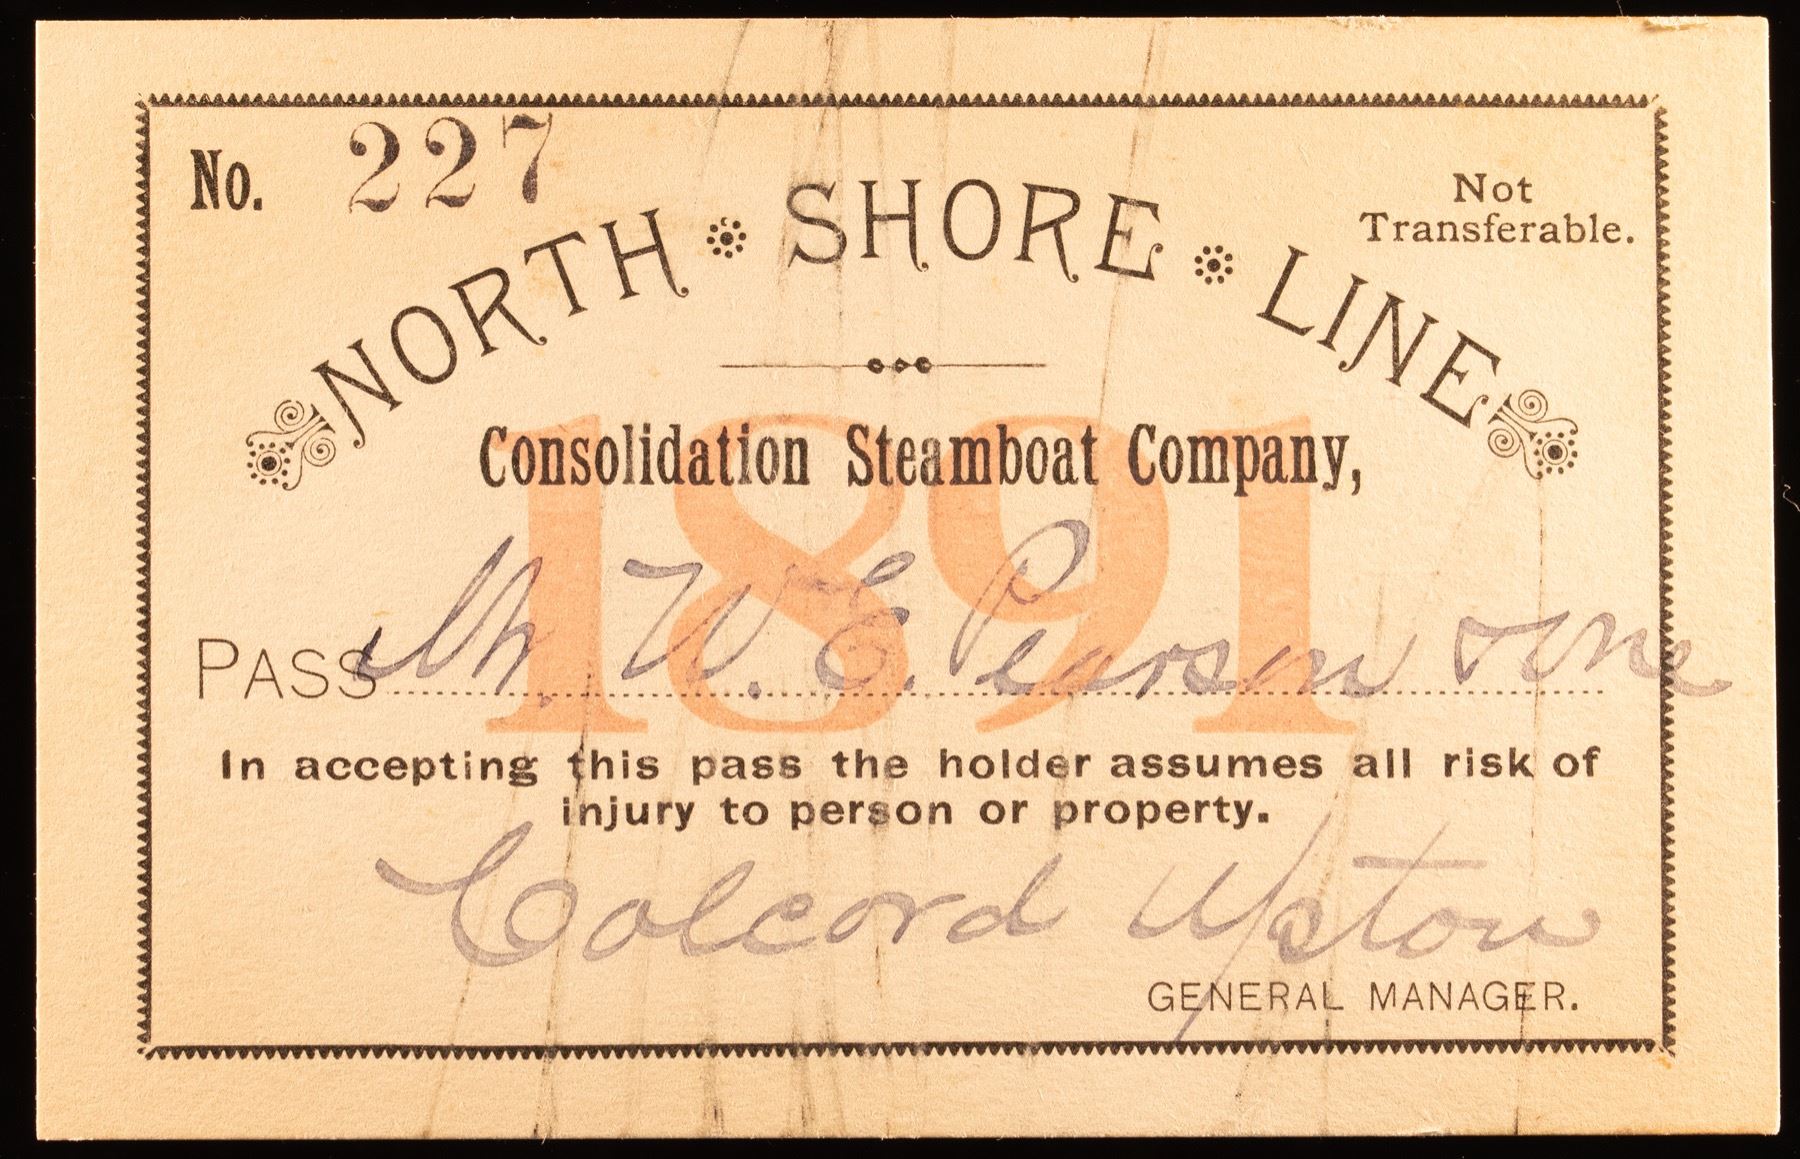 No. 227
Not
Transferable.
NORTH SHORE LINE
1891
Consolidation Steamboat Company,
PASS Mr. W. E. Pearson & One
In accepting this pass the holder assumes all risk of
injury to person or property.
Colcord Upton
GENERAL MANAGER.